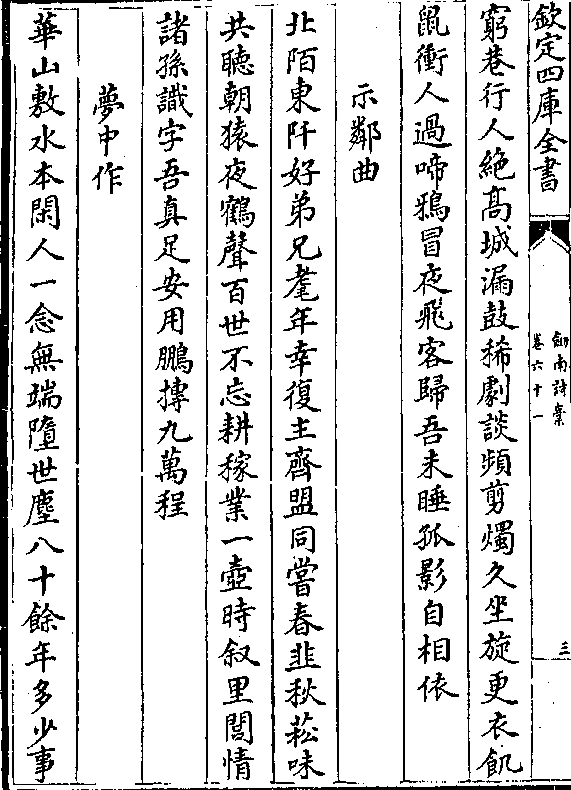 欽定四庫全書
劒南詩稾
卷六十一
三
窮巷行人絶髙城漏鼓稀劇談頻剪燭久坐旋更衣飢
鼠衝人過啼鴉冒夜飛客歸吾未睡孤影自相依
示鄰曲
北陌東阡好弟兄耄年幸復主齊盟同嘗春韭秋菘味
共聴朝猿夜鶴聲百世不忘耕稼業一壺時叙里閭情
諸孫識字吾真足安用鵬摶九萬程
夢中作
華山敷水本閑人一念無端墮世塵八十餘年多少事